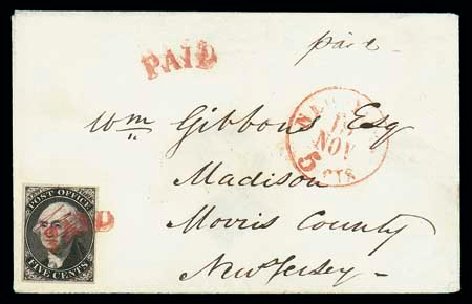 PAID
paid
Wm Gibbons Esq
NEW
NOV
5 CTS
Madison
Morris County
New Jersey
POST OFFICE
PAID
FIVE CENTS